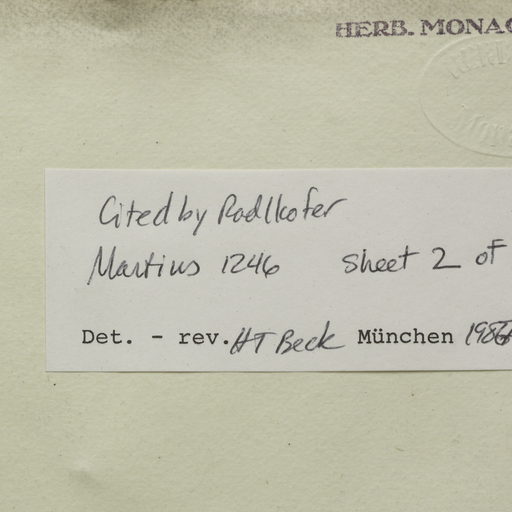 HERB. MONAC
Cited by Radlkofer
Martius 1246 sheet 2 of
Det. - rev. HT Beck München